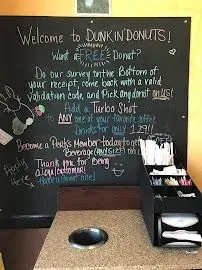 Welcome to DUNKIN' DONUTS!
Want a FREE Donut?
Do our survey to the Bottom of
your receipt, come back with a valid
Validation code, and Pick any donut on US!
Add a Turbo Shot
to ANY one of your favorite
Drinks for ONLY 1.29!!
Become a Perks Member today to get
Beverage (ANY SIZE)
Thank you for Being
a loyal customer!
Apply
Here